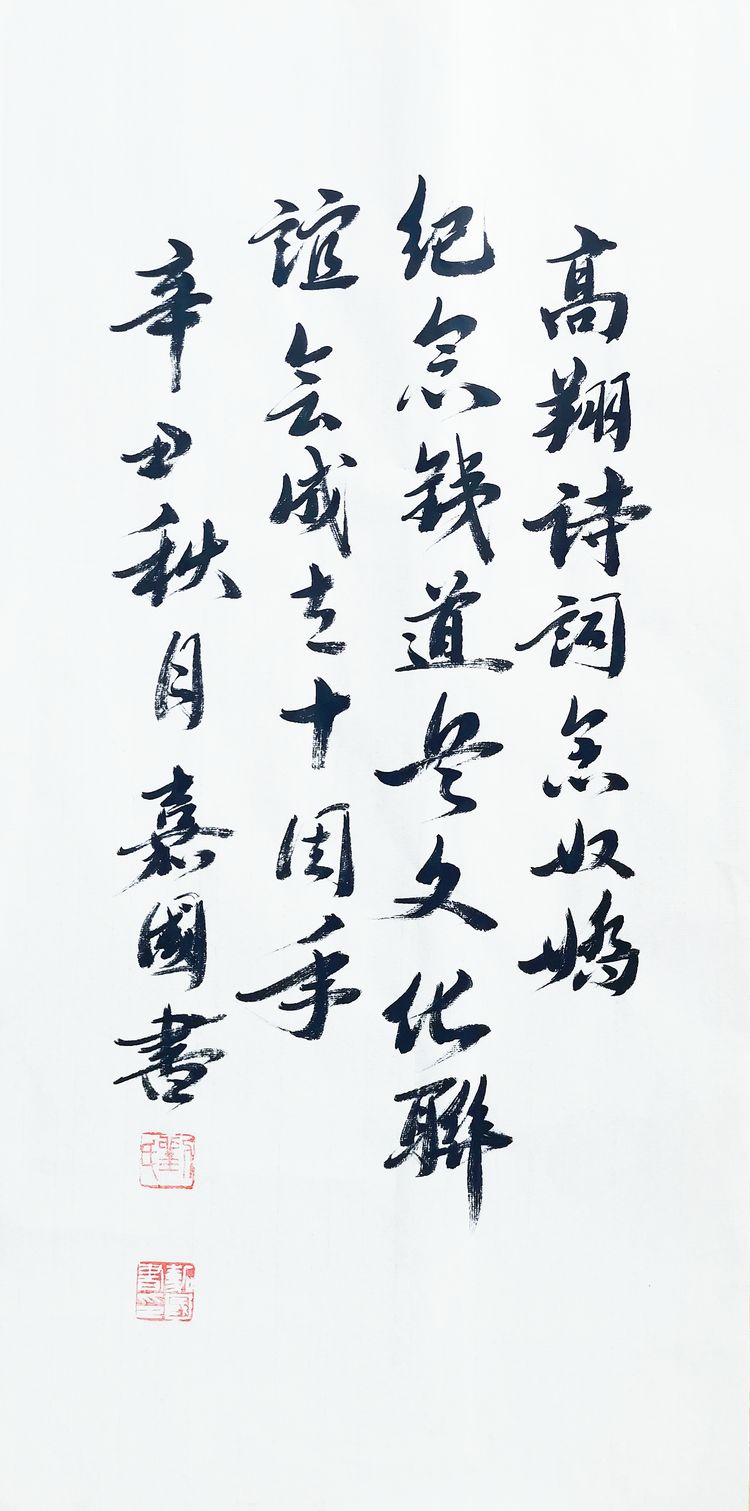 高翔詩詞念奴嬌
紀念錢道吳文化聯
誼会成立十周年
辛丑秋月嘉國書